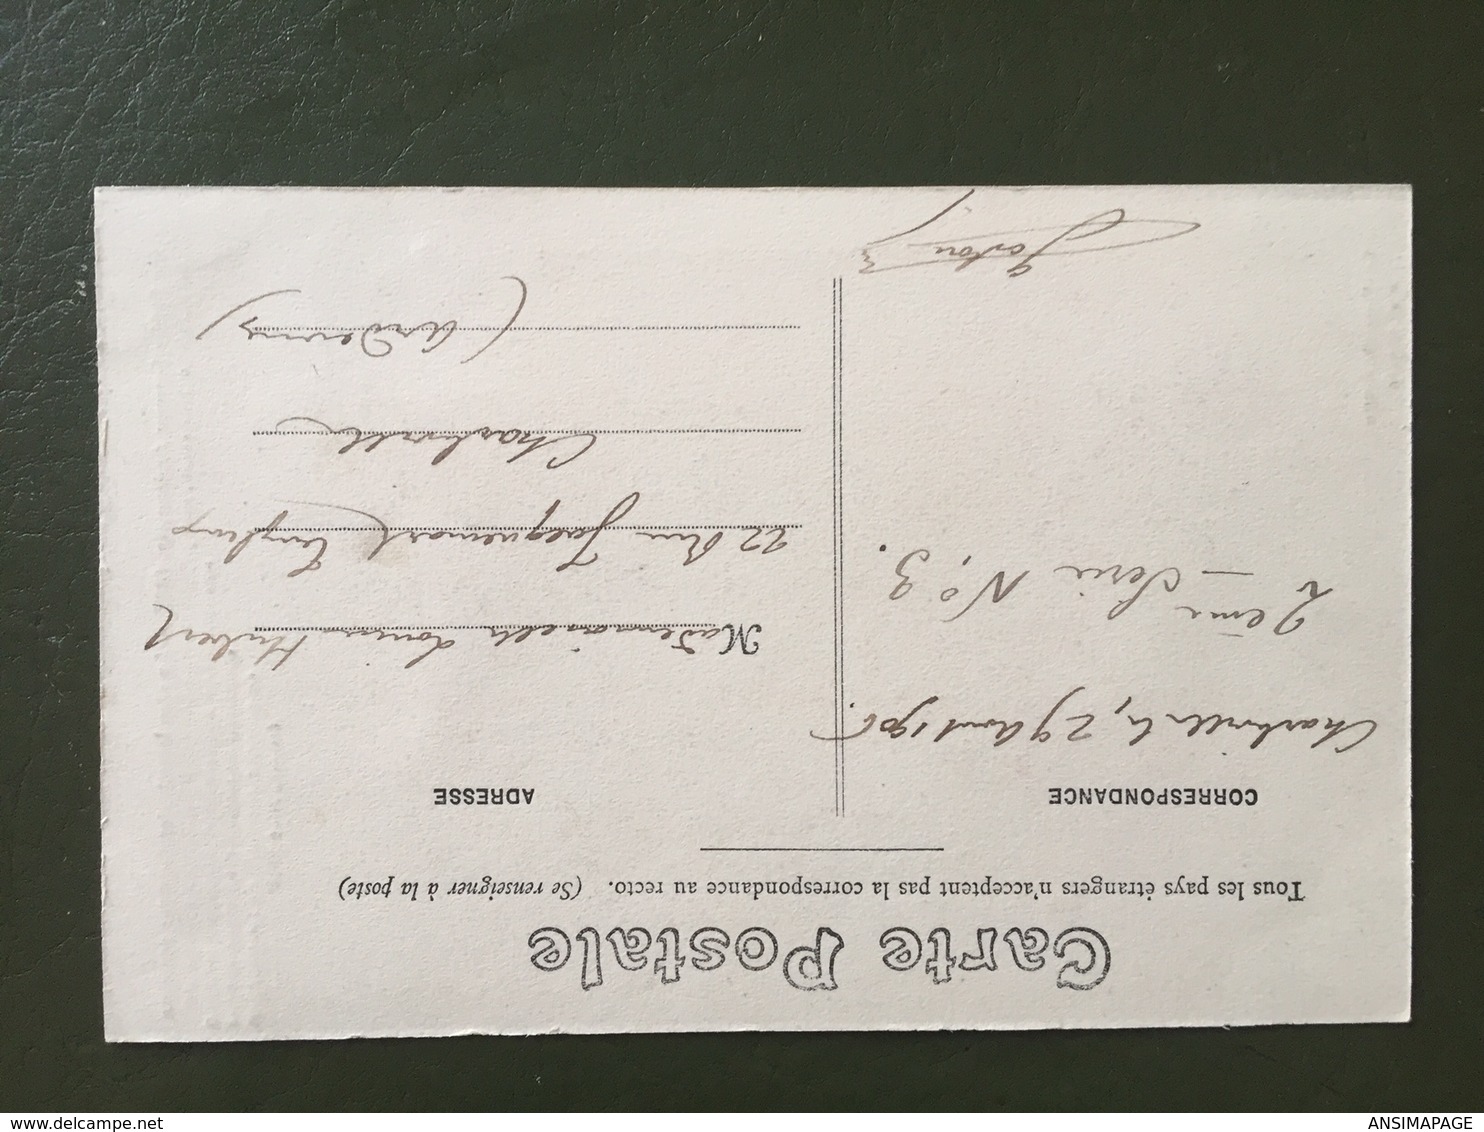 Carte Postale
Tous les pays étrangers n'acceptent pas la correspondance au recto. (Se renseigner à la poste)
CORRESPONDANCE
Charleville, 29 Août 1905.
2ème Série No, 3.
Gaston
ADRESSE
Mademoiselle Louise Hubert
22 Rue Jacquemart Templeux
Charleville
(Ardennes)
www.delcampe.net
ANSIMAPAGE